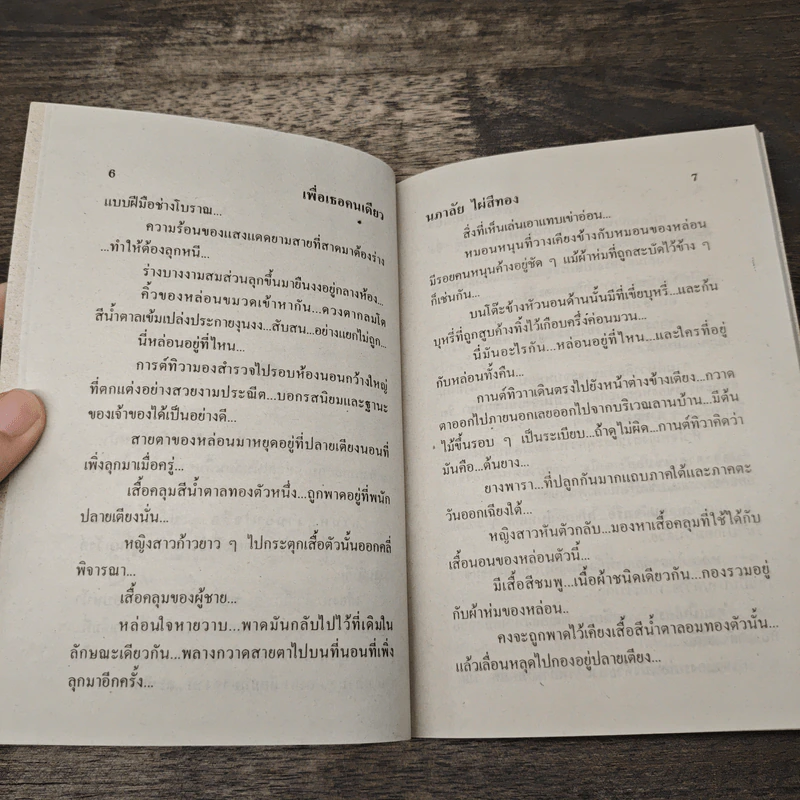 6
เพื่อเธอคนเดียว
แบบฝีมือช่างโบราณ...
ความร้อนของแสงแดดยามสายที่สาดมาต้องร่าง
...ทำให้ต้องลุกหนี...
ร่างบางงามสมส่วนลุกขึ้นมายืนงงอยู่กลางห้อง...
คิ้วของหล่อนขมวดเข้าหากัน...ดวงตากลมโต
สีน้ำตาลเข้มเปล่งประกายงุนงง...สับสน...อย่างแยกไม่ถูก...
นี่หล่อนอยู่ที่ไหน...
การต์ทิวามองสำรวจไปรอบห้องนอนกว้างใหญ่
ที่ตกแต่งอย่างสวยงามประณีต...บอกรสนิยมและฐานะ
ของเจ้าของได้เป็นอย่างดี...
สายตาของหล่อนมาหยุดอยู่ที่ปลายเตียงนอนที่
เพิ่งลุกมาเมื่อครู่...
เสื้อคลุมสีน้ำตาลทองตัวหนึ่ง...ถูกพาดอยู่ที่พนัก
ปลายเตียงนั่น...
หญิงสาวก้าวยาว ๆ ไปกระตุกเสื้อตัวนั้นออกคลี่
พิจารณา...
เสื้อคลุมของผู้ชาย...
หล่อนใจหายวาบ...พาดมันกลับไปไว้ที่เดิมใน
ลักษณะเดียวกัน...พลางกวาดสายตาไปบนที่นอนที่เพิ่ง
ลุกมาอีกครั้ง...
7
นภาลัย ไผ่สีทอง
สิ่งที่เห็นเล่นเอาแทบเข่าอ่อน...
หมอนหนุนที่วางเคียงข้างกับหมอนของหล่อน
มีรอยคนหนุนค้างอยู่ชัด ๆ แม้ผ้าห่มที่ถูกสะบัดไว้ข้าง ๆ
ก็เช่นกัน...
บนโต๊ะข้างหัวนอนด้านนั้นมีที่เขี่ยบุหรี่...และก้น
บุหรี่ที่ถูกสูบค้างทิ้งไว้เกือบครึ่งค่อนมวน...
นี่มันอะไรกัน...หล่อนอยู่ที่ไหน...และใครที่อยู่
กับหล่อนทั้งคืน...
กานต์ทิวาเดินตรงไปยังหน้าต่างข้างเตียง...กวาด
ตาออกไปภายนอกเลยออกไปจากบริเวณลานบ้าน...มีต้น
ไม้ขึ้นรอบ ๆ เป็นระเบียบ...ถ้าดูไม่ผิด...กานต์ทิวาคิดว่า
มันคือ...ต้นยาง...
ยางพารา...ที่ปลูกกันมากแถบภาคใต้และภาคตะ
วันออกเฉียงใต้...
หญิงสาวหันตัวกลับ...มองหาเสื้อคลุมที่ใช้ได้กับ
เสื้อนอนของหล่อนตัวนี้...
มีเสื้อสีชมพู...เนื้อผ้าชนิดเดียวกัน...กองรวมอยู่
กับผ้าห่มของหล่อน..
คงจะถูกพาดไว้เคียงเสื้อสีน้ำตาลอมทองตัวนั้น...
แล้วเลื่อนหลุดไปกองอยู่ปลายเตียง...